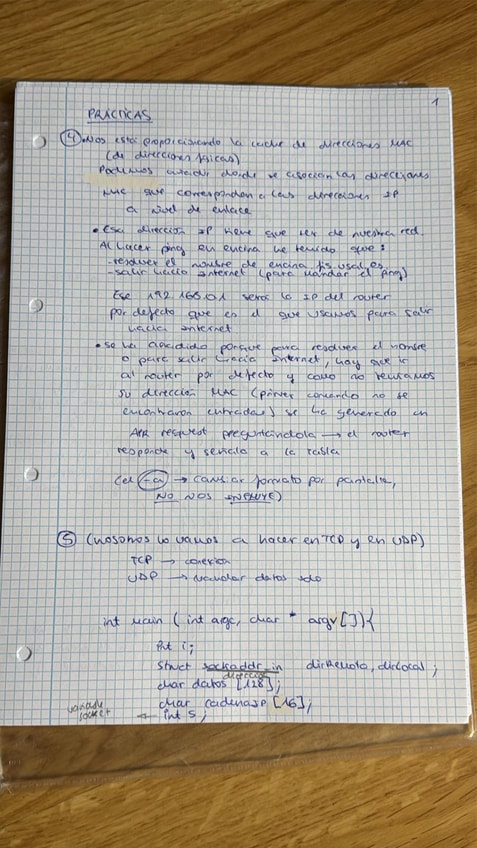 1
PRÁCTICAS
4 Nos está proporcionando la cache de direcciones MAC
(de direcciones físicas)
Podemos acceder donde se asocian las direcciones
MAC que corresponden a las direcciones IP
a nivel de enlace
• Esa dirección IP tiene que ser de nuestra red.
Al hacer ping en encina he tenido que:
- resolver el nombre de encina.fis.usal.es
- salir hacia internet (para mandar el ping)
Ese 192.168.0.1 será la IP del router
por defecto que es el que usamos para salir
hacia internet
• se ha añadido porque para resolver el nombre
o para salir hacia internet, hay que ir
al router por defecto y como no teníamos
su dirección MAC (primer comando no se
encontraron entradas) se ha generado un
ARP request preguntándola → el router
responde y se a la tabla
(el -a → cambiar formato por pantalla,
NO NOS INFLUYE)
5 (nosotros lo vamos a hacer en TCP y en UDP)
TCP → conexión
UDP → mandar datos solo
int main (int argc, char * argv[]){
int i;
struct sockaddr_in dirRemota, dirLocal;
dirección
char datos [128];
char cadenaIP [16];
variable
socket
← int s;